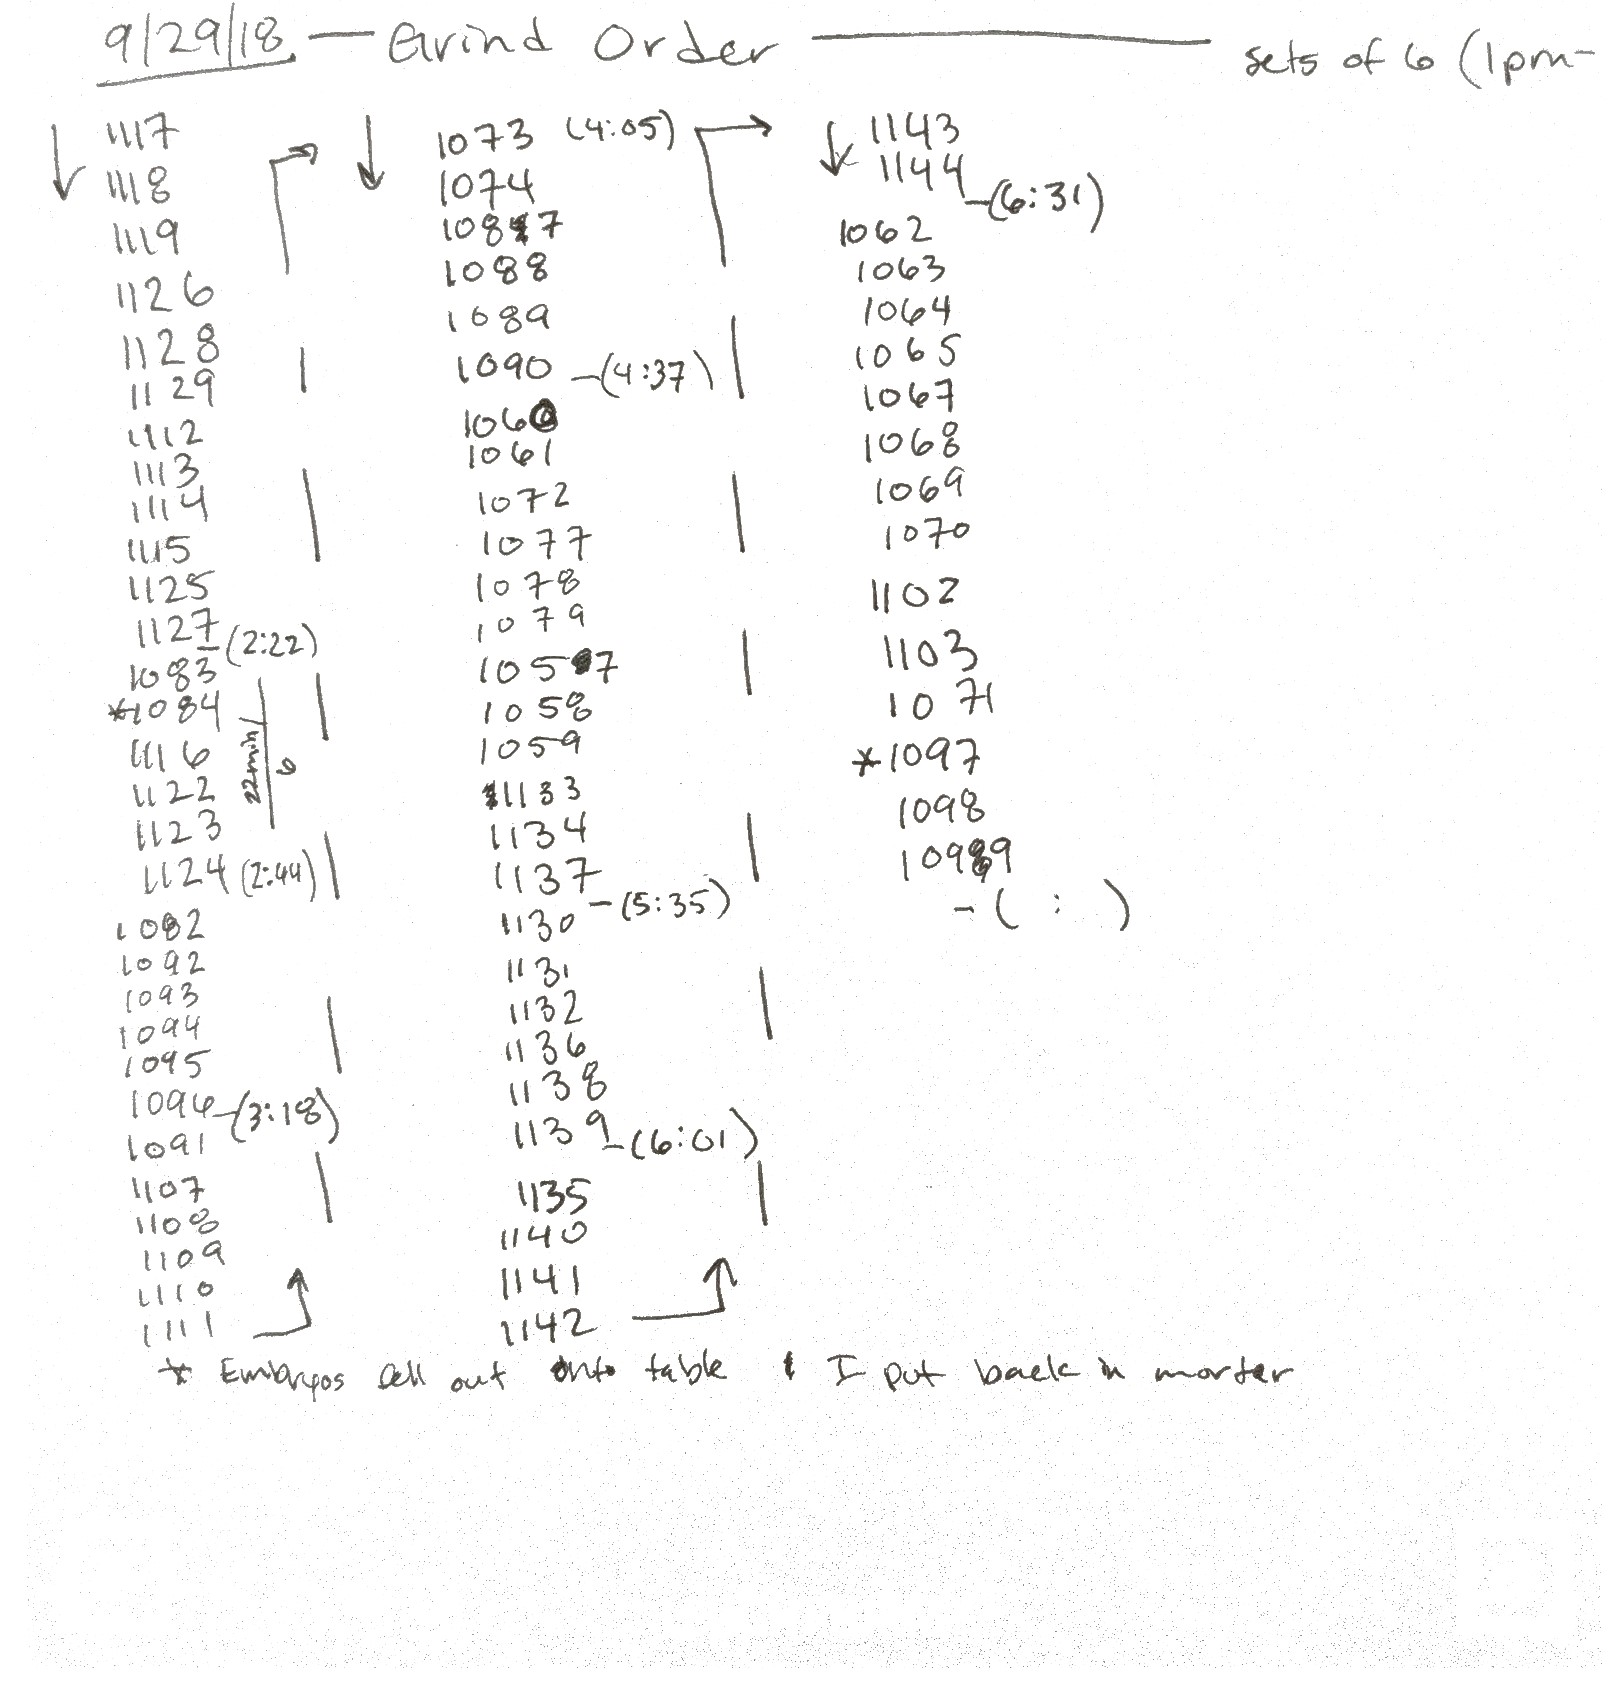 9/29/18 — Grind Order — sets of 6 (1pm-
1117
1118
1119
1126
1128
1129
1112
1113
1114
1115
1125
1127 - (2:22)
1083
*1084
1116
1122
1123
22min/6
1124 (2:44)
1082
1092
1093
1094
1095
1096 - (3:18)
1091
1107
1108
1109
1110
1111
1073 (4:05)
1074
1087
1088
1089
1090 - (4:37)
1060
1061
1072
1077
1078
1079
1057
1058
1059
1133
1134
1137 - (5:35)
1130
1131
1132
1136
1138
1139 - (6:01)
1135
1140
1141
1142
1143
1144 - (6:31)
1062
1063
1064
1065
1067
1068
1069
1070
1102
1103
1071
*1097
1098
1099
- ( : )
* Embryos fell out onto table & I put back in morter